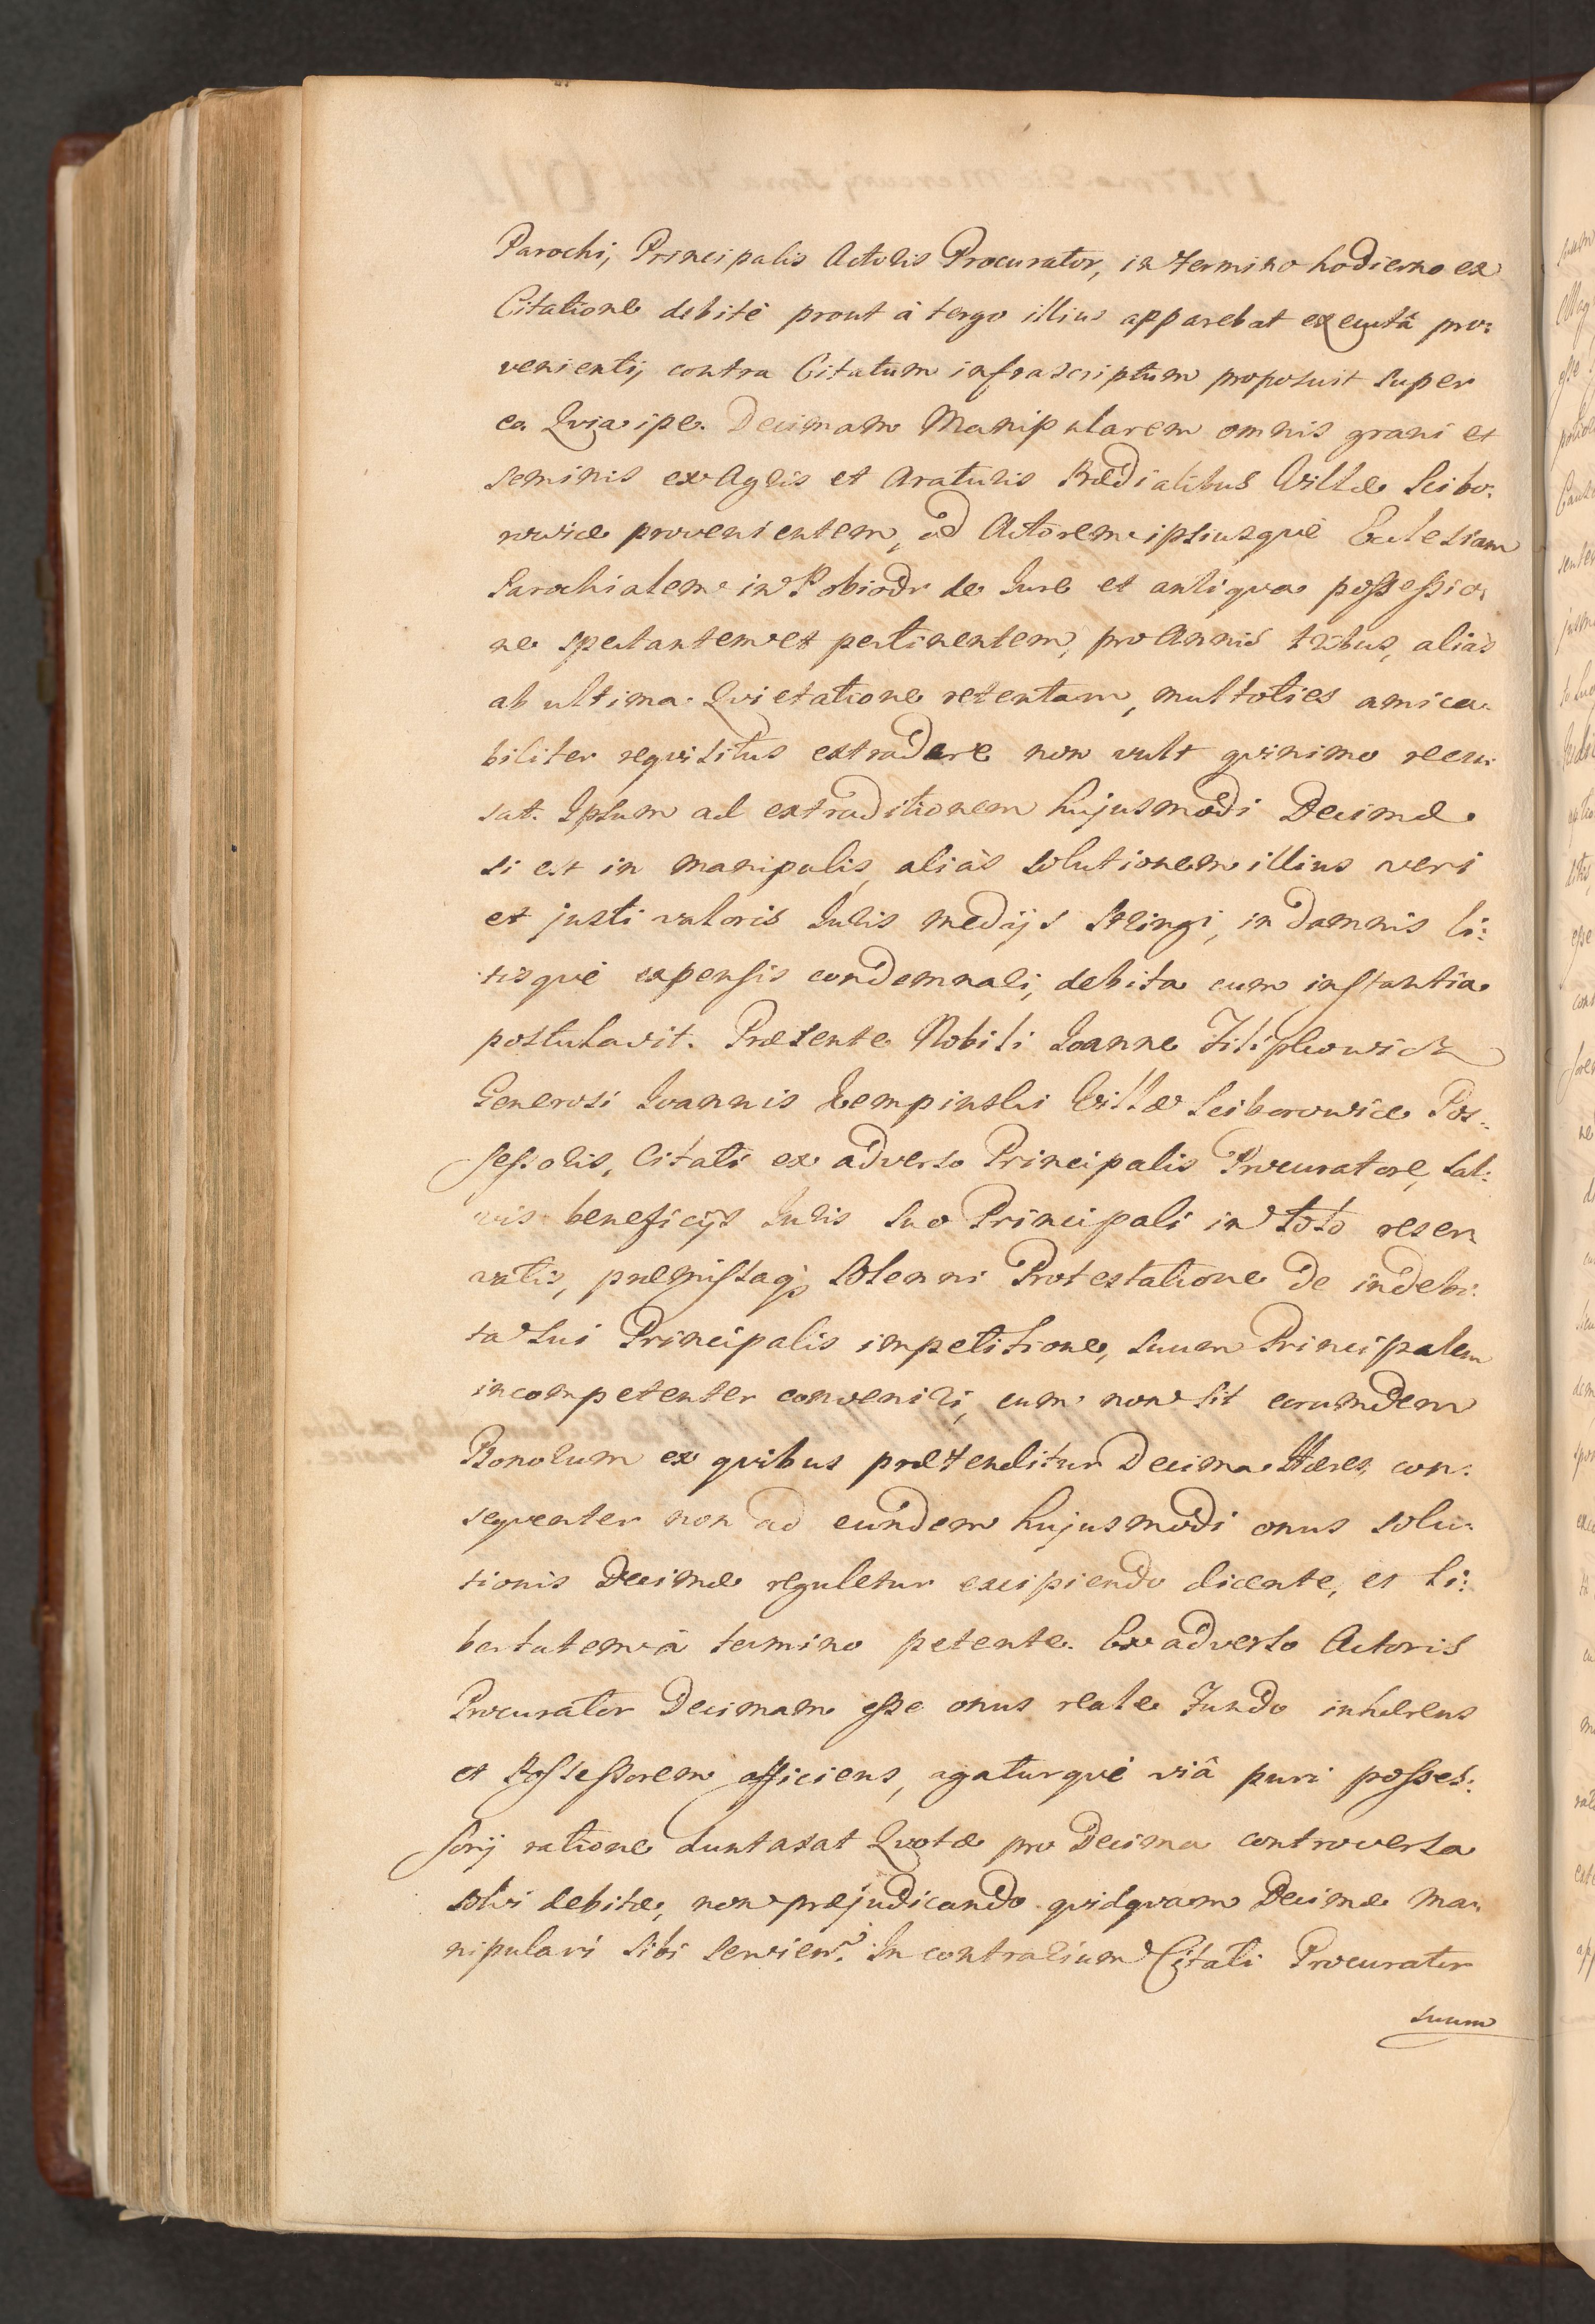 Parochi, Principalis Actoris Procurator, in termino hodierno ex
Citatione debitè prout à tergo illius apparebat executâ pro:
venienti, contra Citatum infrascriptum proposuit super
eo. Qvia ipe. Decimam Manipularem omnis grani et
seminis ex Agris et Araturis Prædialibus Villæ Scibo:
rowice provenientem, ad Actorem ipsiusqve Ecclesiam
Parochialem in Pobiodr de Jure et antiqva possessio:
ne spectantem et pertinentem, pro Annis tribus, aliàs
ab ultima Qvietatione retentam, multoties amica:
biliter reqvisitus extradere non vult qvinimo recu:
sat. Ipsum ad extraditionem hujusmodi Decimæ
si est in manipulis, aliàs solutionem illius veri
et justi valoris Juris medijs stringi, in damnis li:
tisqve expensis condemnari, debita cum instantia
postulavit. Præsente Nobili Joanne Filipkowicz
Generosi Joannis Kempinski Villæ Sciborowice Pos:
sessoris, Citati ex adverso Principalis Procuratore, sal:
vis beneficijs Juris suo Principali in toto reser
vatis, præmissaq; solenni Protestatione de indebi:
ta sui Principalis impetitione, suum Principalem
incompetenter conveniri, cum non sit eorumdem
Bonorum ex qvibus prætenditur Decima Hæres, con:
seqventer non ad eundem hujusmodi onus solu:
tionis Decimæ reguletur excipiendo dicente, et li:
bertatem à termino petente. Ex adverso Actoris
Procurator Decimam esse onus reale Fundo inhærens
et Possessorem afficiens, agaturqve viâ puri posses:
sorij ratione duntaxat Qvotæ pro Decima controversa
solvi debitæ, non præjudicando qvidqvam Decimæ Ma:
nipulari sibi servien. In contrarium Citati Procurator
suum